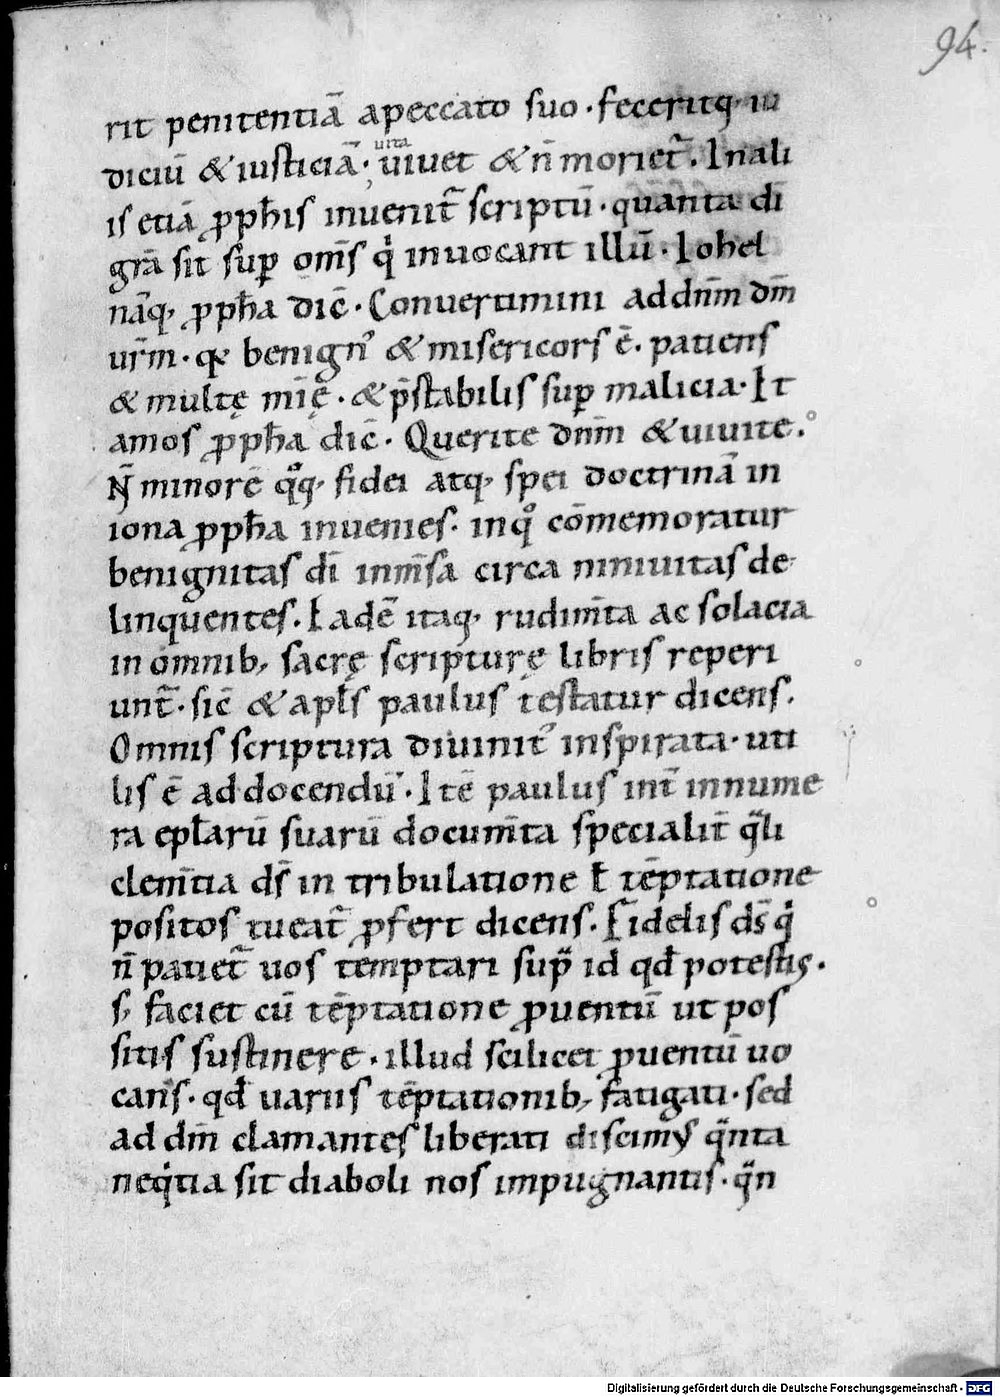 94.
rit penitentiā apeccato suo · feceritq; iu
diciū & iusticiā · uita uiuet & n̄ moriet̄ . Inali
is etiā ꝓph̄is inuenit̄ scriptū · quanta dī
gr̄a sit suꝑ om̄s qͥ inuocant illū . Iohel
nāq; ꝓph̄a dic̄ . Conuertimini ad dn̄m dm̄
ur̄m . qꝛ benignꝰ & misericors ē . patiens
& multę mīę . & p̄stabilis suꝑ malicia . It
amos ꝓph̄a dic̄ . Querite dn̄m & uiuite .
N̄ minorē qͦq; fidei atq; spei doctrinā in
iona ꝓph̄a inuenies . inqͦ cōmemoratur
benignitas dī inm̄sa circa niniuitas de
linquentes . Eadē itaq; rudim̄ta ac solacia
in omnib; sacrę scripturę libris reperi
unt̄ . sic̄ & apl̄s paulus testatur dicens .
Omnis scriptura diuinitꝰ inspirata · uti
lis ē ad docendū . Itē paulus int̄ innume
ra epl̄arū suarū docum̄ta specialit̄ qͣli
clem̄tia ds̄ in tribulatione ł tēptatione
positos tueat̄ ꝓfert dicens . Fidelis ds̄ qͥ
n̄ patiet̄ uos temptari supͣ id qd̄ potestis .
s; faciet cū tēptatione ꝓuentū ut pos
sitis sustinere . illud scilicet ꝓuentū uo
cans . qd̄ uariis tēptationib; fatigati · sed
ad dm̄ clamantes liberati discimꝰ qͣnta
neqͥtia sit diaboli nos impugnantis . qͣn
Digitalisierung gefördert durch die Deutsche Forschungsgemeinschaft - DFG